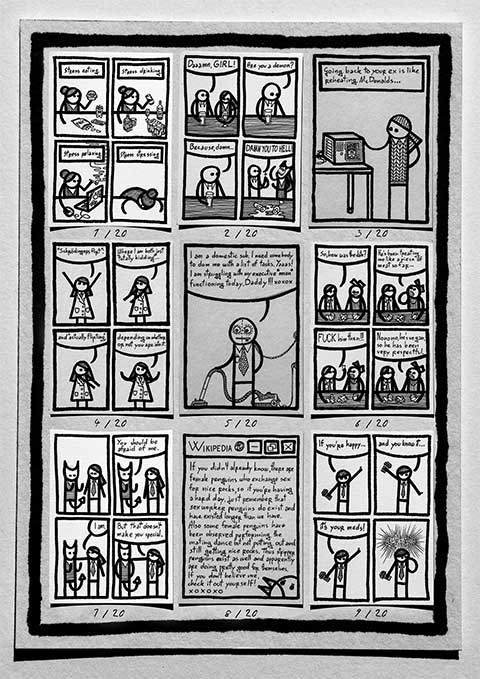 Stress eating
Stress drinking
Stress relaxing
Stress
1 / 20
Daaamn, GIRL!
Are you a demon?
Because, damn...
DAMN YOU TO HELL!
2 / 20
Going back to your ex is like
reheating McDonalds...
3 / 20
flirt".
Where I am both just
"totally kidding"
and actually flirting
depending on whether
or not you are into it.
4 / 20
I am a domestic sub. I need somebody
to dom me with a list of tasks. Yaaas!
I am struggling with my executive "man"
functioning today, Daddy!!! xoxox
5 / 20
So, how was the date?
He's been treating
me like a piece of
meat so far...
FUCK him then!!!
No no no, he's vegan,
so he has been
very respectful.
6 / 20
You should be
afraid of me.
I am.
But that doesn't
make you special.
7 / 20
WIKIPEDIA
If you didn't already know, there are
female penguins who exchange sex
for nice rocks, so if you're having
a hard day, just remember that
sexworker penguins do exist and
have existed longer than we have.
Also some female penguins have
been observed performing the
mating dance but not putting out and
still getting nice rocks. Thus stripper
penguins exist as well and apparently
are doing pretty good for themselves.
If you don't believe me
check it out yourself!
xoxoxo
8 / 20
If you're happy...
and you know it...
It's your meds!
9 / 20